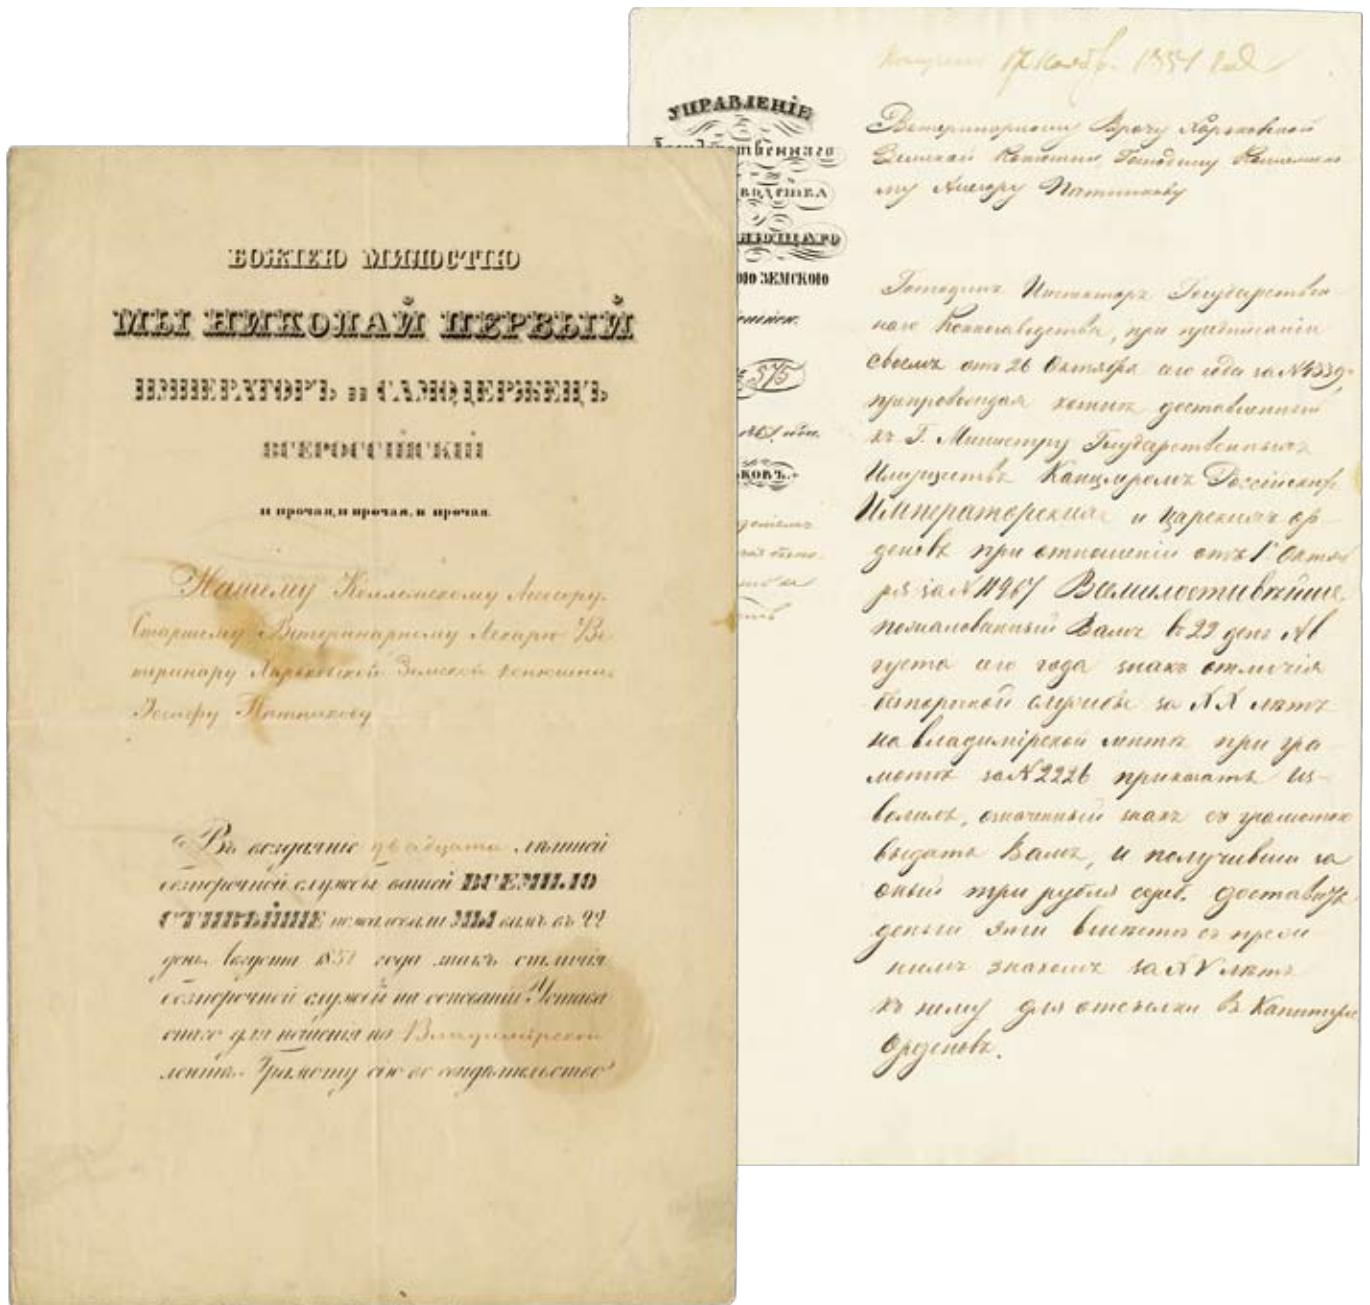 БОЖІЕЮ МИЛОСТІЮ
МЫ НИКОЛАЙ ПЕРВЫЙ
ИМПЕРАТОРЪ и САМОДЕРЖЕЦЪ
ВСЕРОССІЙСКІЙ
и прочая, и прочая, и прочая.
Нашему Коллежскому Асессору,
Старшему Ветеринарному Лекарю Ве-
теринару Харьковской Земской конюшни
Іосифу Пятникову
Въ воздаяніе двадцати лѣтней
безпорочной службы вашей ВСЕМИЛО
СТИВѢЙШЕ пожаловали МЫ вамъ въ 22
день Августа 1851 года знакъ отличія
безпорочной службы на основаніи Устава
онаго для ношенія на Владимірской
лентѣ. Грамоту сію во свидѣтельство
Ноябр. 1851 года
УПРАВЛЕНІЕ
Государственнаго
ВОДСТВА
ЯЮЩАГО
ОЮ ЗЕМСКОЮ
№ 575
года.
КОВЪ.
Ветеринарному Врачу Харьковской
Земской Конюшни, Господину Коллежско-
му Асессору Пятникову
Господинъ Инспекторъ Государствен-
наго Коннозаводства, при предписаніи
своемъ отъ 26 Октября сего года за № 4339,
препровождая ко мнѣ доставленный
къ Г. Министру Государственныхъ
Имуществъ Канцлеромъ Россійскихъ
Императорскихъ и Царскихъ ор-
деновъ при отношеніи отъ 1 Октяб
ря за № 11967 Всемилостивѣйше
пожалованный Вамъ въ 22 день Ав
густа сего года знакъ отличія
безпорочной службы за XX лѣтъ
на владимірской лентѣ при гра
мотѣ за № 2226 приказать из-
волилъ, означенный знакъ съ грамотою
выдать Вамъ, и получивши за
оный три рубля сереб. доставить
деньги эти вмѣстѣ съ преж
нимъ знакомъ за XV лѣтъ
къ нему для отсылки въ Капитулъ
Орденовъ.